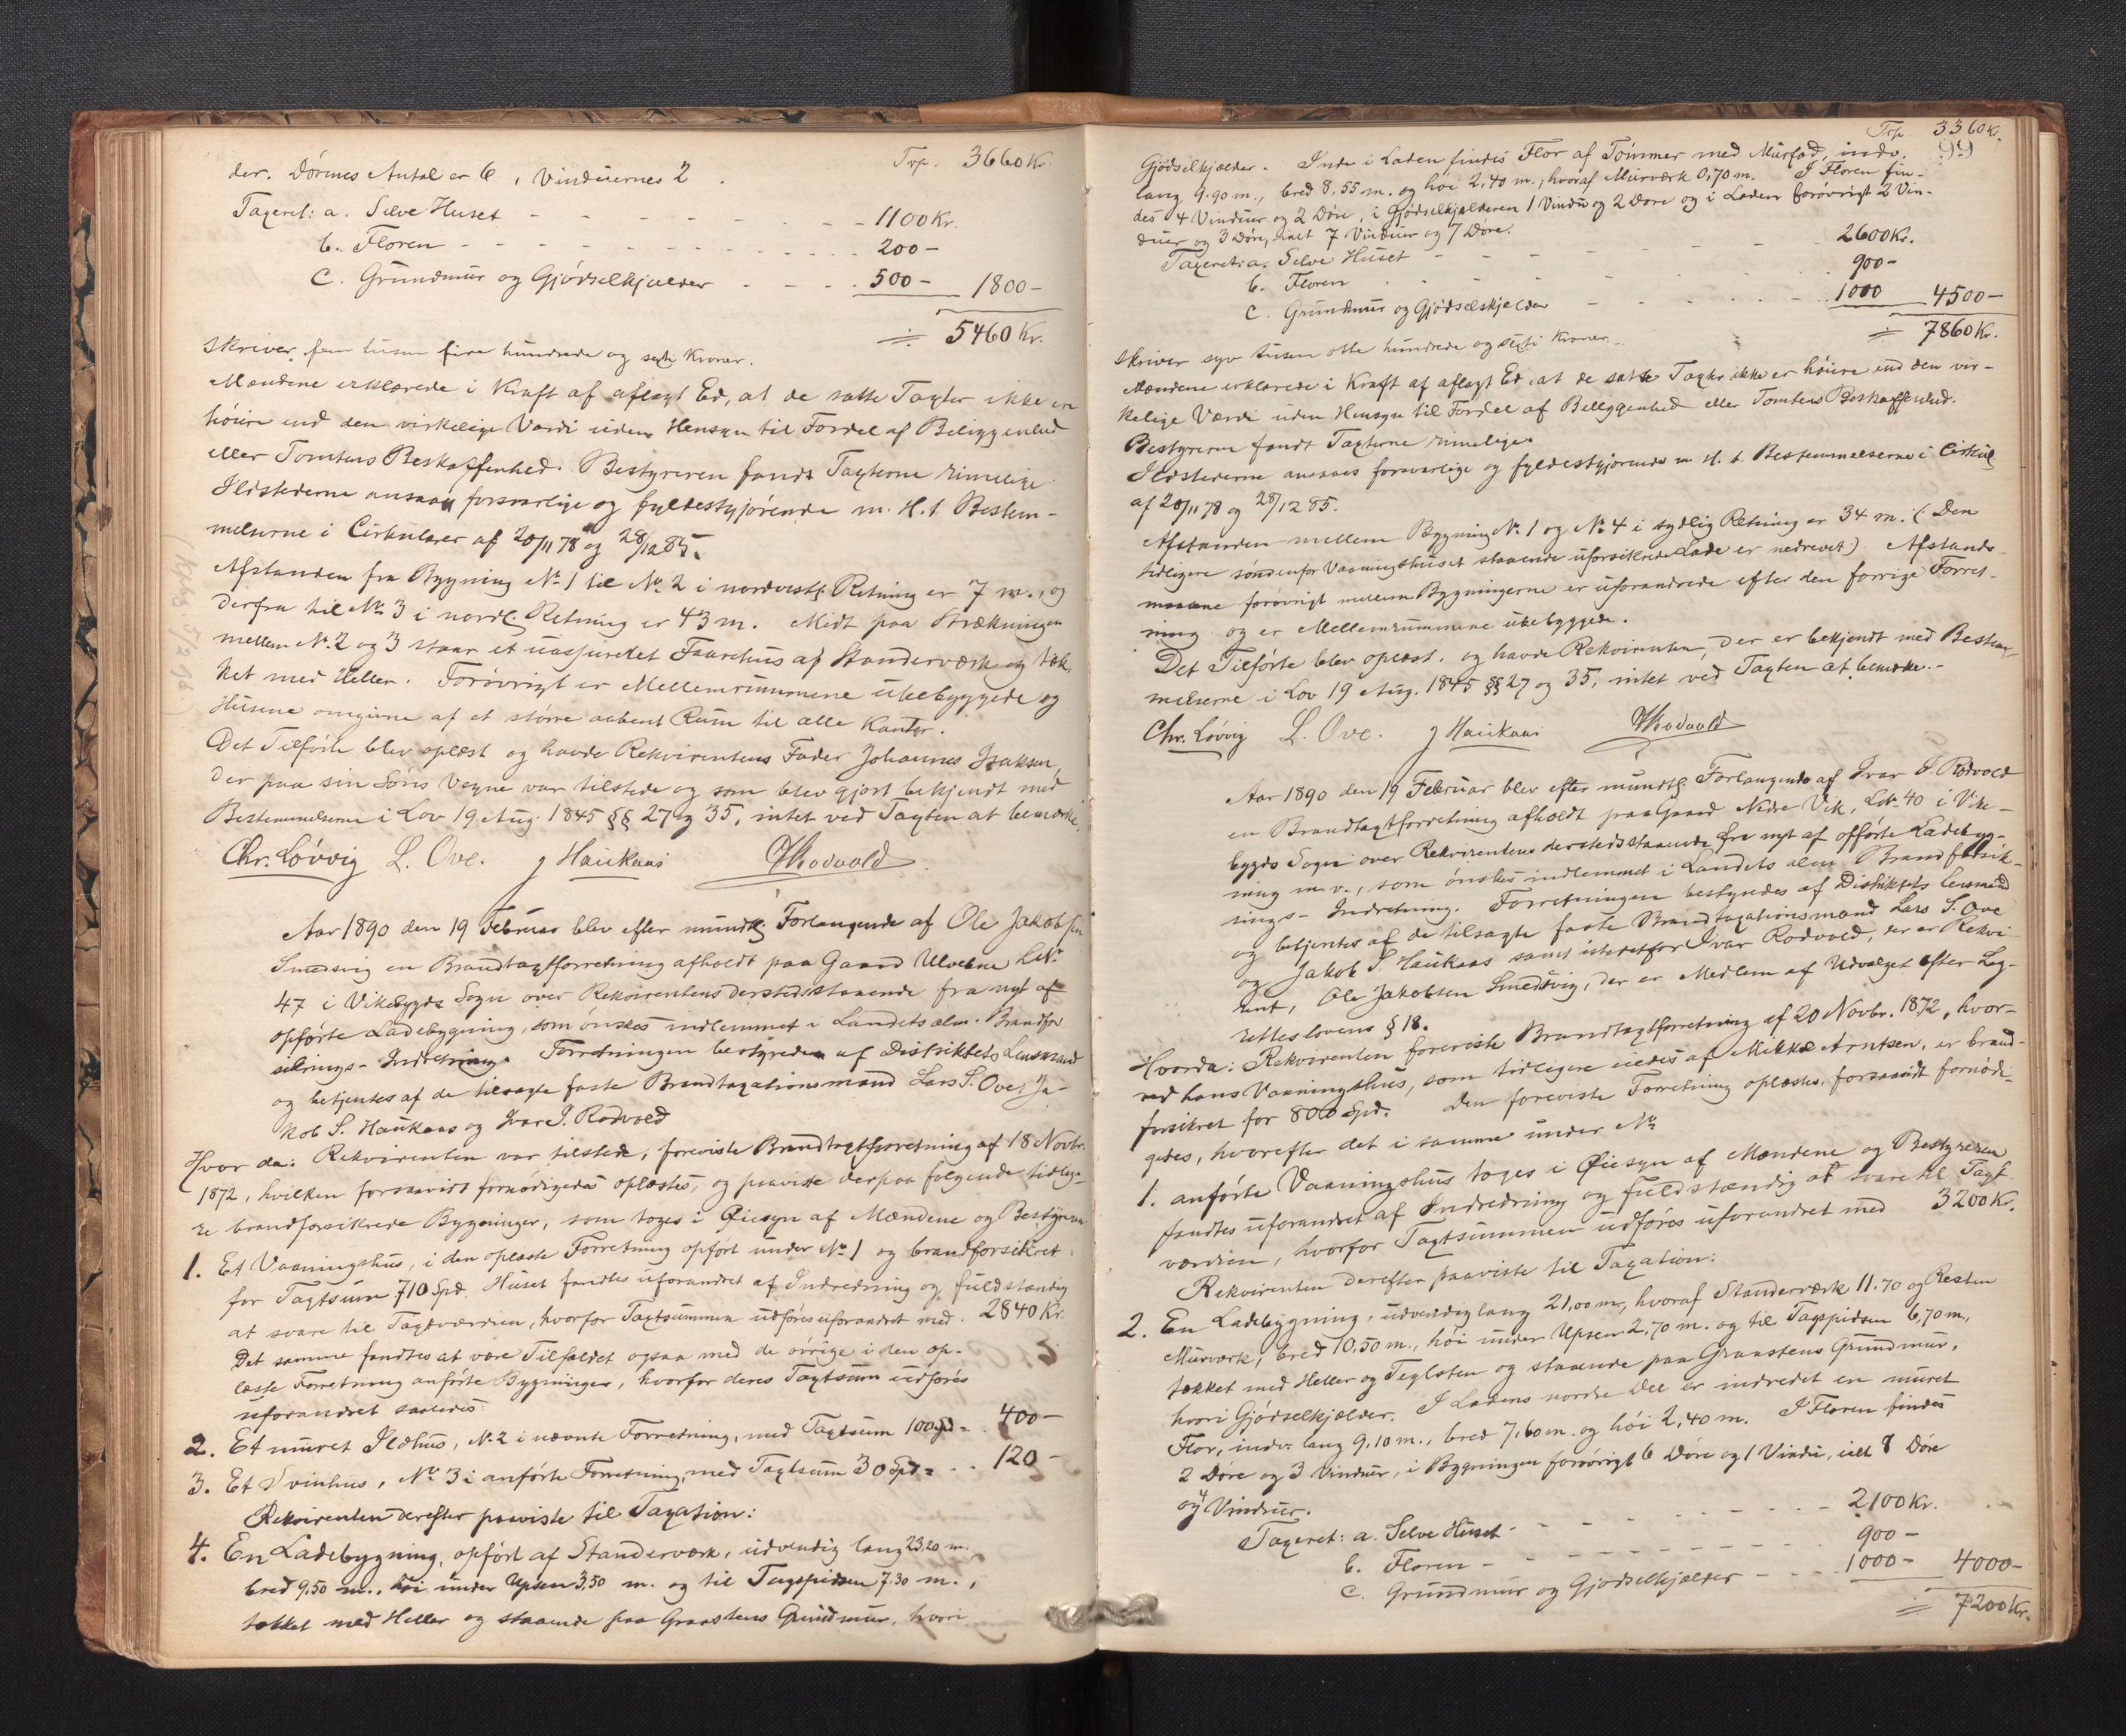 Trp. 3660 Kr.
der. Dørenes Antal er 6, Vinduernes 2.
Taxeret: a. Selve Huset - - - - 1100 Kr.
b. Floren - - - - 200 -
c. Grundmur og Gjødselkjælder - - - 500 - 1800 -
= 5460 Kr.
skriver fem tusen fire hundrede og sexti Kroner.
Mændene erklærede i Kraft af aflagt Ed, at de satte Taxter ikke er
høiere end den virkelige Værdi uden Hensyn til Fordel af Beliggenhed
eller Tomtens Beskaffenhed. Bestyreren fandt Taxterne rimelige.
Ildstederne ansaaes forsvarlige og fyldestgjørende m. H. t. Bestem-
melserne i Cirkulærer af 20/11 78 og 28/12 85.
Afstanden fra Bygning No 1 til No 2 i nordvestl. Retning er 7 m., og
derfra til No 3 i nordl. Retning er 43 m. Midt paa Strækningen
mellem No 2 og 3 staar et uassureret Faarehus af Standerværk og tæk-
ket med Heller. Forøvrigt er Mellemrummene ubebyggede og
Husene omgivne af et større aabent Rum til alle Kanter.
Det Tilførte blev oplæst og havde Rekvirentens Fader Johannes Isaksen,
der paa sin Søns Vegne var tilstede og som blev gjort bekjendt med
Bestemmelserne i Lov 19 Aug. 1845 §§ 27 og 35, intet ved Taxten at bemærke.
Chr. Løvvig L. Ove. J Haukaas J Rodvold
Aar 1890 den 19 Februar blev efter mundtlg. Forlangende af Ole Jakobsen
Smedsvig en Brandtaxtforretning afholdt paa Gaard Ulvebne LNr.
47 i Vikebygds Sogn over Rekvirentens dersteds staaende fra nyt af
opførte Ladebygning, som ønskes indlemmet i Landets alm. Brandfor-
sikrings-Indretning. Forretningen bestyredes af Distriktets Lensmand
og betjentes af de tilsagte faste Brandtaxationsmænd Lars S. Ove, Ja-
kob S. Haukaas og Ivar J. Rodvold
Hvor da: Rekvirenten var tilstede, foreviste Brandtaxtforretning af 18 Novbr.
1872, hvilken forsaavidt fornødigedes oplæstes, og paaviste derpaa følgende tidlige-
re brandforsikrede Bygninger, som toges i Øiesyn af Mændene og Bestyreren
1. Et Vaaningshus, i den oplæste Forretning opført under No 1 og brandforsikret
for Taxtsum 710 Spd. Huset fandtes uforandret af Indredning og fuldstændig
at svare til Taxtværdien, hvorfor Taxtsummen udføres uforandret med. 2840 Kr.
Det samme fandtes at være Tilfældet ogsaa med de øvrige i den op-
læste Forretning anførte Bygninger, hvorfor deres Taxtsum udføres
uforandret saaledes:
2. Et muret Ildhus, No 2 i nævnte Forretning, med Taxtsum 100 Spd = 400 -
3. Et Svinhus, No 3 i anførte Forretning, med Taxtsum 30 Spd = . . 120 -
Rekvirenten derefter paaviste til Taxation:
4. En Ladebygning, opført af Standerværk, udvendig lang 23,20 m.
bred 9,50 m., høi under Upsen 3,50 m. og til Tagspidsen 7.30 m.,
tækket med Heller og staaende paa Graastens Grundmur, hvori
Trp. 3360 Kr.
99
Gjødselkjælder. Inde i Laden findes Flor af Tømmer med Murfod, indv.
lang 9.90 m., bred 8,55 m. og høi 2,40 m., hvoraf Murværk 0,70 m. I Floren fin-
des 4 Vinduer og 2 Døre, i Gjødselkjælderen 1 Vindu og 2 Døre og i Laden forøvrigt 2 Vin-
duer og 3 Døre, ialt 7 Vinduer og 7 Døre.
Taxeret: a. Selve Huset - - - - 2600 Kr.
b. Floren - - - - 900 -
c. Grundmur og Gjødselskjælder - - - 1000 4500 -
= 7860 Kr.
skriver syv tusen otte hundrede og sexti Kroner.
Mændene erklærede i Kraft af aflagt Ed, at de satte Taxter ikke er høiere end den vir-
kelige Værdi uden Hensyn til Fordel af Beliggenhed eller Tomtens Beskaffenhed.
Bestyreren fandt Taxterne rimelige.
Ildstederne ansaaes forsvarlige og fyldestgjørende m. H. t. Bestemmelserne i Cirkul.
af 20/11 78 og 28/12 85.
Afstanden mellem Bygning No 1 og No 4 i sydlig Retning er 34 m. (Den
tidligere søndenfor Vaaningshuset staaende uforsikrede Lade er nedrevet). Afstands-
maalene forøvrigt mellem Bygningerne er uforandrede efter den forrige Forret-
ning og er Mellemrummene ubebyggede.
Det Tilførte blev oplæst, og havde Rekvirenten, der er bekjendt med Bestem-
melserne i Lov 19 Aug. 1845 §§ 27 og 35, intet ved Taxten at bemærke.-
Chr. Løvvig L. Ove. J Haukaas J Rodvold
Aar 1890 den 19 Februar blev efter mundtlg. Forlangende af Ivar J. Rodvold
en Brandtaxtforretning afholdt paa Gaard Nedre Vik, LNr. 40 i Vike-
bygds Sogn over Rekvirentens dersteds staaende fra nyt af opførte Ladebyg-
ning m. v., som ønskes indlemmet i Landets alm. Brandforsik-
rings-Indretning. Forretningen bestyredes af Distriktets Lensmand
og betjentes af de tilsagte faste Brandtaxationsmænd Lars S. Ove
og Jakob S. Haukaas samt istedetfor Ivar Rodvold, der er Rekvi-
rent, Ole Jakobsen Smedsvig, der er Medlem af Udvalget efter Lag-
retteslovens § 18.
Hvorda: Rekvirenten foreviste Brandtaxtforretning af 20 Novbr. 1872, hvor-
ved hans Vaaningshus, som tidligere eiedes af Mikkel Arntsen, er brand-
forsikret for 800 Spd. Den foreviste Forretning oplæstes, forsaavidt fornødi-
gedes, hvorefter det i samme under No
1. anførte Vaaningshus toges i Øiesyn af Mændene og Bestyreren
fandtes uforandret af Indredning og fuldstændig at svare til Taxt-
værdien, hvorfor Taxtsummen udføres uforandret med 3200 Kr.
Rekvirenten derefter paaviste til Taxation:
2. En Ladebygning, udvendig lang 21,00 m., hvoraf Standerværk 11.70 og Resten
Murværk, bred 10,50 m., høi under Upsen 2,70 m. og til Tagspidsen 6,70 m,
tækket med Heller og Teglsten og staaende paa Graastens Grundmur,
hvori Gjødselkjælder. I Ladens nordre Del er indredet en muret
Flor, indv. lang 9,10 m., bred 7,60 m. og høi 2,40 m. I Floren findes
2 Døre og 3 Vinduer, i Bygningen forøvrigt 6 Døre og 1 Vindu, ialt 8 Døre
og 4 Vinduer.
Taxeret: a. Selve Huset - - - - 2100 Kr.
b. Floren - - - - 900 -
c. Grundmur og Gjødselkjælder - - - 1000 - 4000 -
= 7200 Kr.